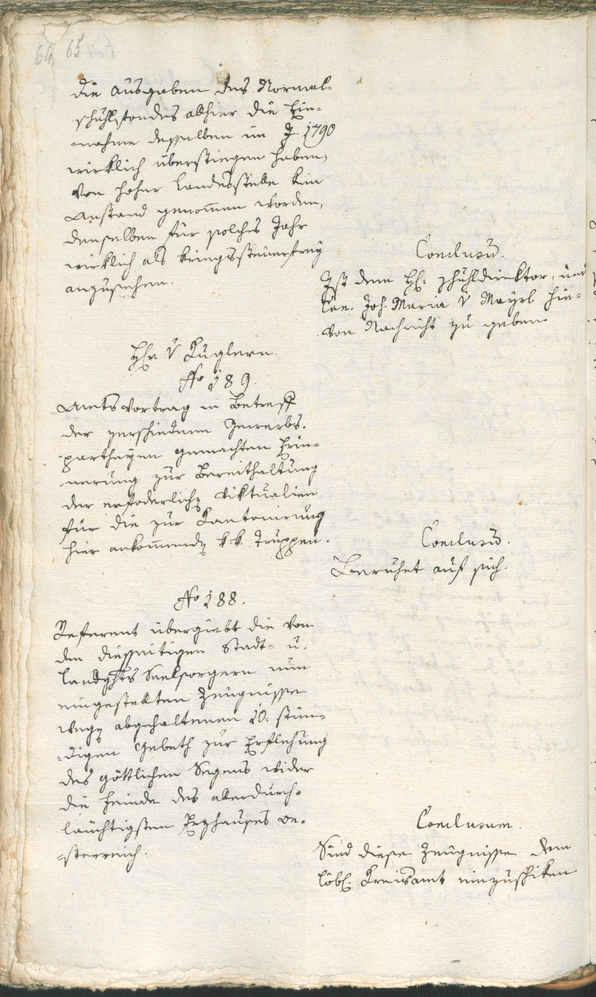 64 65
die Ausgaben des Normal-
schuhlfondes alhier die Ein-
-nahme desselben im J 1790
wirklich überstiegen haben,
von hoher Landesstelle kein
Anstand genommen worden,
denselben für solches Jahr
wirklich als kriegssteuerfrey
anzusehen.
Conclusū.
Ist dem H: Schuhldirektor, und
Joh: Maria v Mayrl hie-
von Nachricht zu geben
Hr v Kuglern.
No 189.
Amts Vortrag in Betreff
der verschiedenen Gewerbs-
partheyen gemachten Erin-
nerung zur Bereithaltung
der erforderliche Viktualien
für die zur Kantonirung
hier ankommende k k Truppen.
Conclusū.
Beruhet auf sich.
No 188.
Referent übergiebt die von
den diesseitigen Stadt- u.
Landghts Seelsorgern nun
eingestellten Zeugnisse
wege abgehaltenen 10. stün-
digen Gebeth zur Erflehung
des göttlichen Segens wider
die Feinde des allerdurch-
läuchtigsten Erzhauses Oe-
-sterreich.
Conclusum.
Sind diese Zeugnisse dem
löbl: Kreisamt einzuschiken